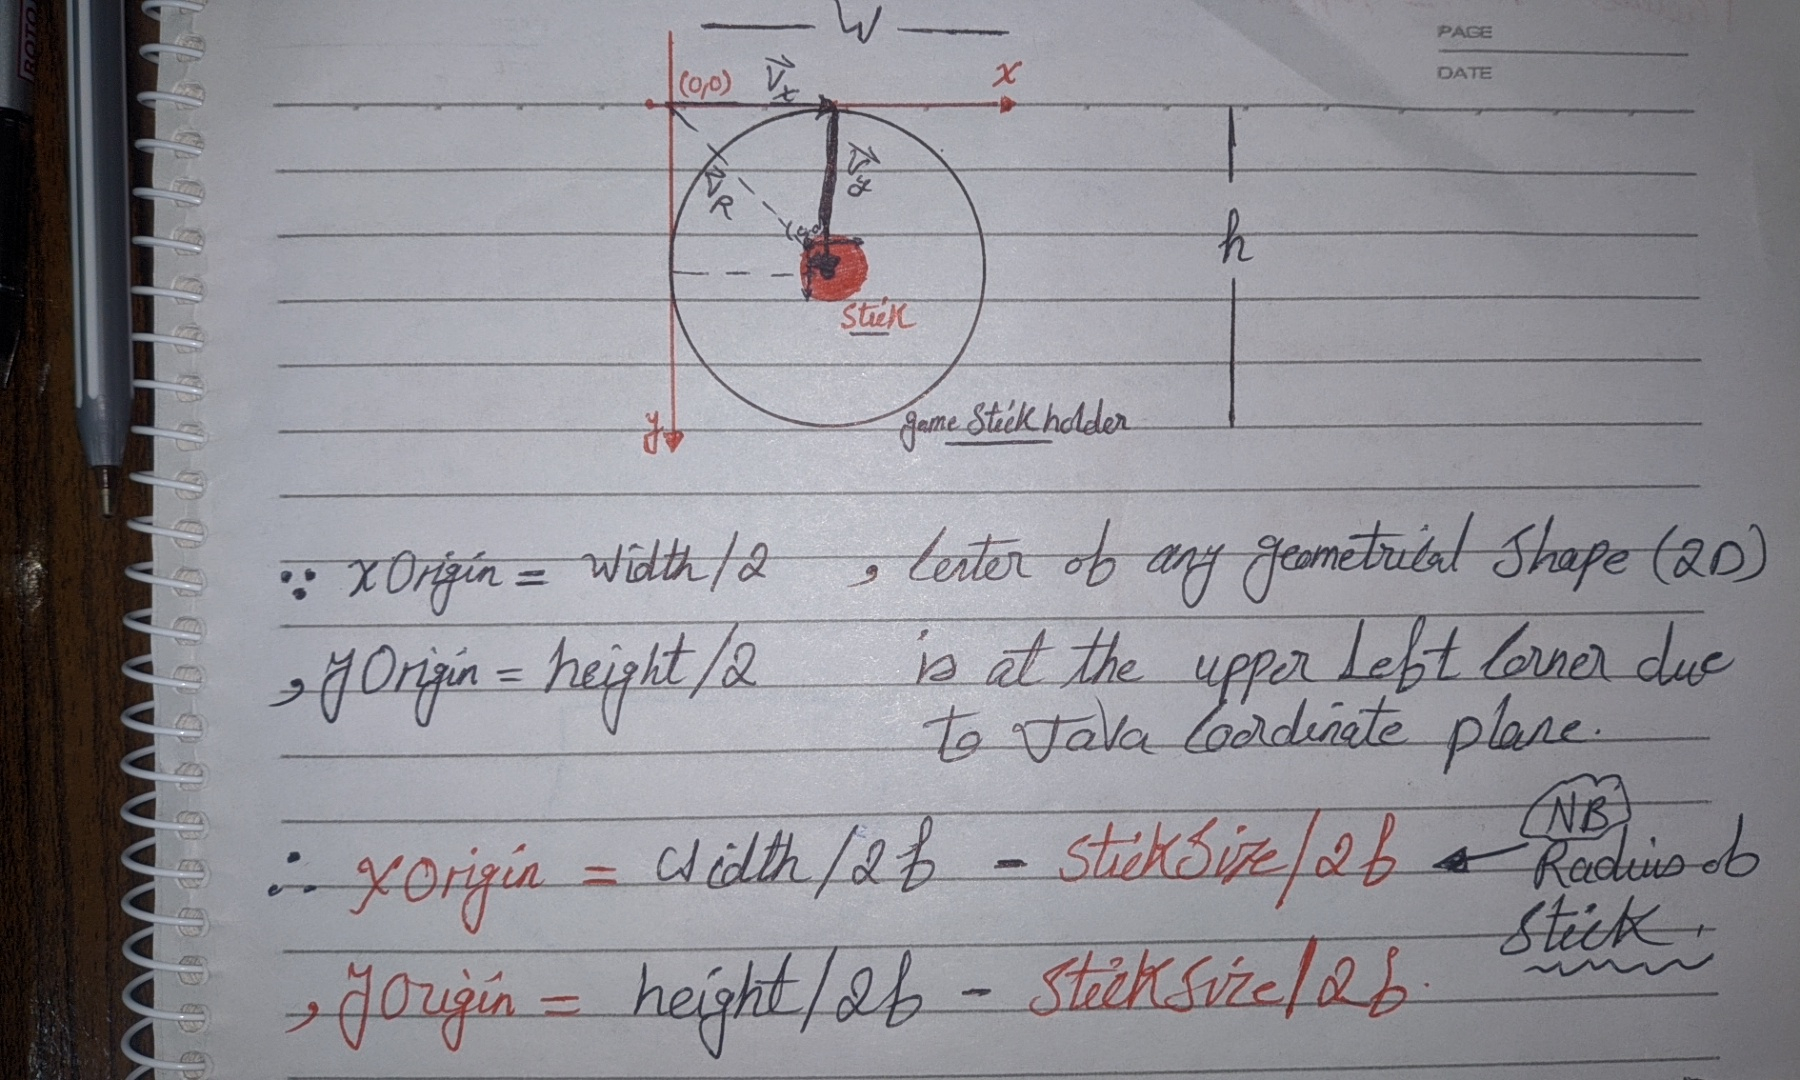 ROTO
PAGE
DATE
W
(0,0)
V⃗x
x
V⃗y
V⃗R
h
Stick
y
game Stick holder
∵ xOrigin = width/2 , Center of any geometrical Shape (2D)
, yOrigin = height/2 is at the upper Left Corner due
to Java Coordinate plane.
NB
∴ xOrigin = width/2f - StickSize/2f
Radius of
Stick.
, yOrigin = height/2f - StickSize/2f.